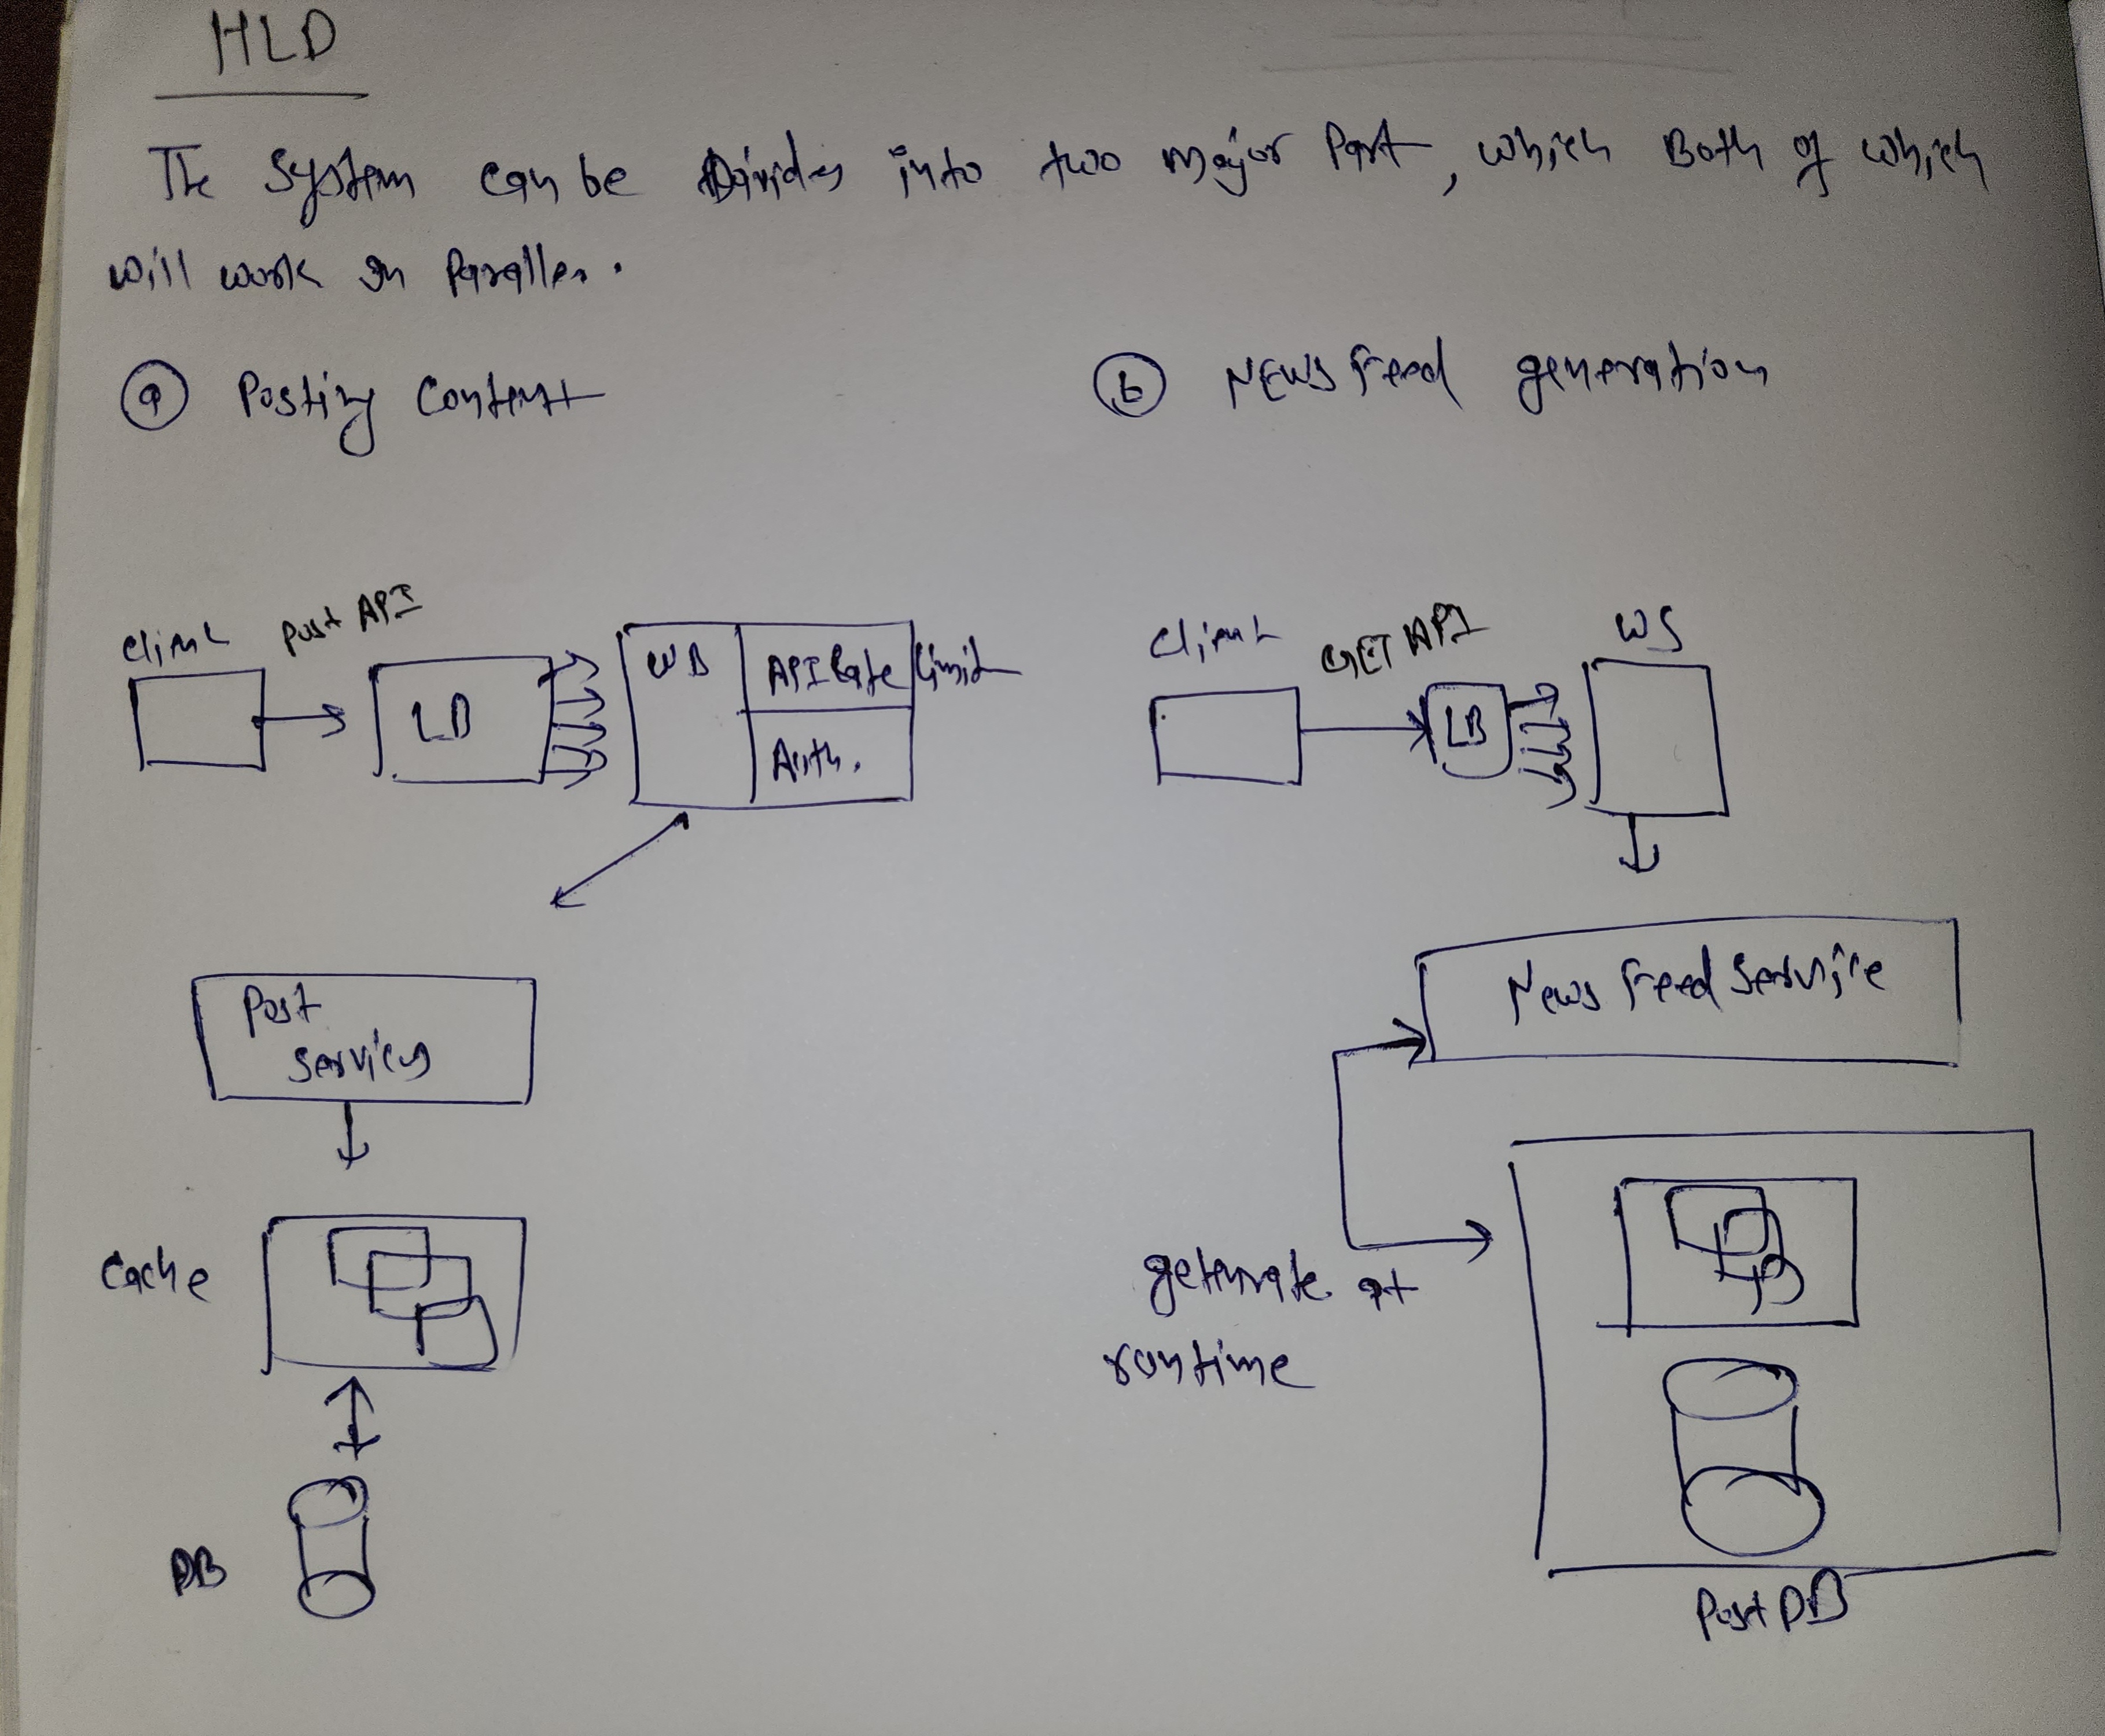 HLD
The System can be Divides into two major Part, which Both of which
will work in Parallel.
a Posting Content
b NEWS Feed generation
client Post API
LB
WB API Rate limit
Auth.
client GET API WS
LB
Post
Services
News Feed Service
Cache
generate at
runtime
DB
Post DB